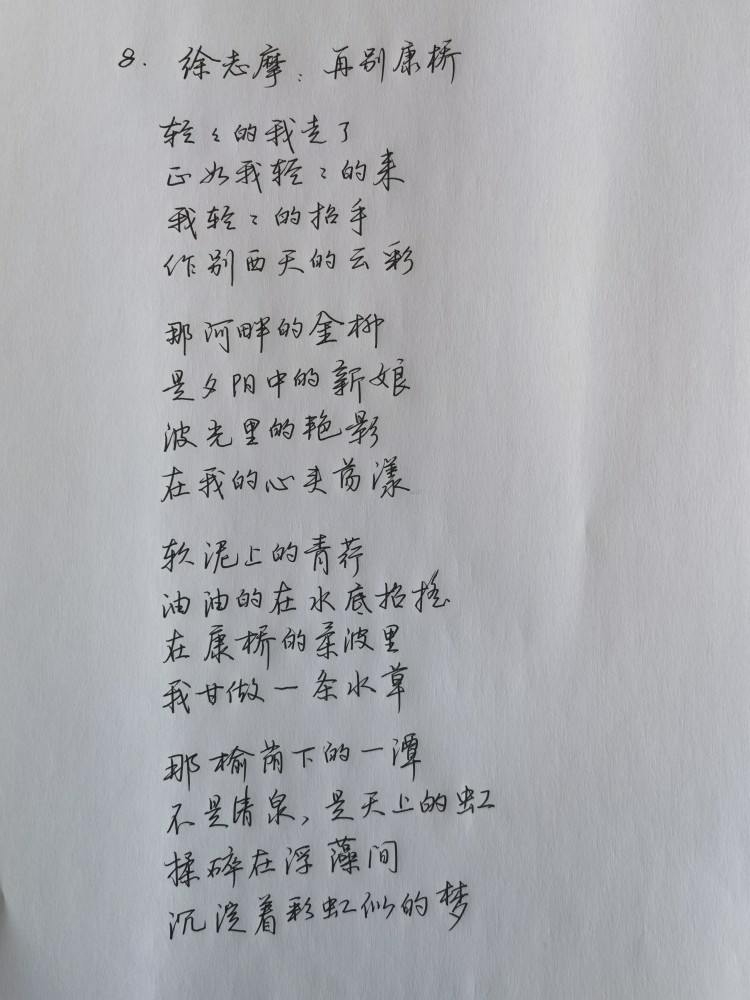 8. 徐志摩：再别康桥
轻々的我走了
正如我轻々的来
我轻々的招手
作别西天的云彩
那河畔的金柳
是夕阳中的新娘
波光里的艳影
在我的心头荡漾
软泥上的青荇
油油的在水底招摇
在康桥的柔波里
我甘做一条水草
那榆荫下的一潭
不是清泉，是天上的虹
揉碎在浮藻间
沉淀着彩虹似的梦